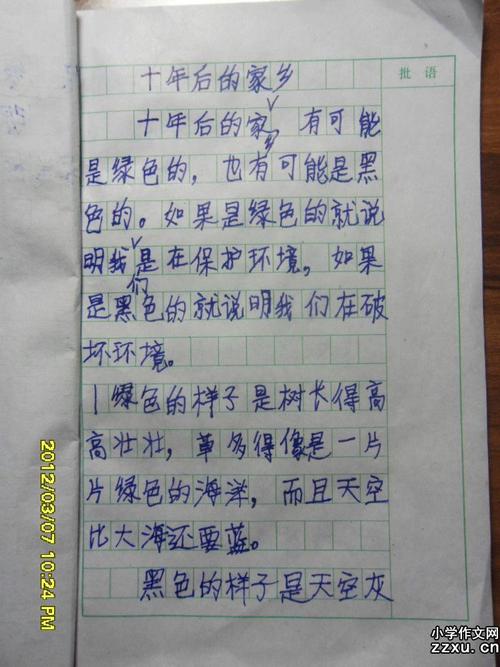 十年后的家乡
批语
十年后的家乡，有可能
是绿色的，也有可能是黑
色的。如果是绿色的就说
明我们是在保护环境，如果
是黑色的就说明我们在破
坏环境。
绿色的样子是树长得高
高壮壮，草多得像是一片
片绿色的海洋，而且天空
比大海还要蓝。
黑色的样子是天空灰
2012/03/07 10:24 PM
小学作文网
zzxu.cn